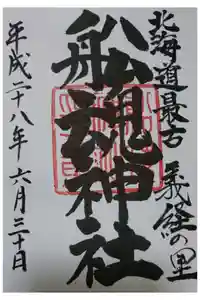 北海道最古 義経の里
船魂神社
平成二十八年 六月三十日